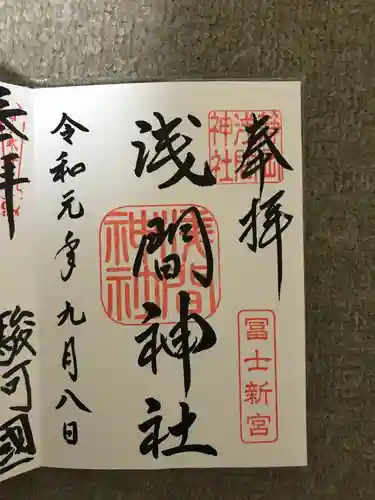 奉拝
冨士新宮
浅間神社
浅間神社
令和元年九月八日
奉拝
駿河國